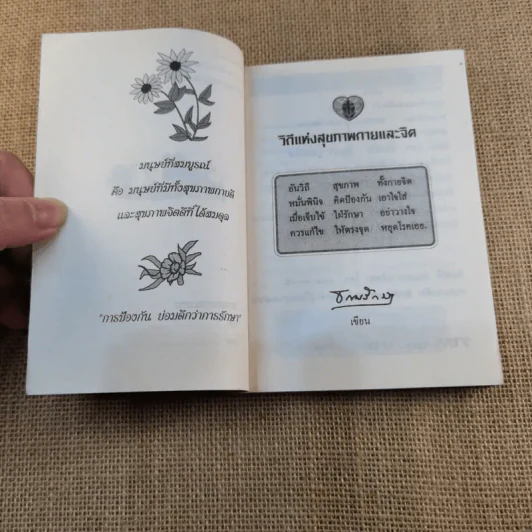 มนุษย์ที่สมบูรณ์
คือ มนุษย์ที่มีทั้งสุขภาพกายดี
และสุขภาพจิตดีที่ได้สมดุล
"การป้องกัน ย่อมดีกว่าการรักษา"
วิถีแห่งสุขภาพกายและจิต
อันวิถี สุขภาพ ทั้งกายจิต
หมั่นพินิจ คิดป้องกัน เอาใจใส่
เมื่อเจ็บไข้ ให้รักษา อย่าวางใจ
ควรแก้ไข ให้ตรงจุด หยุดโรคเอย.
เขียน